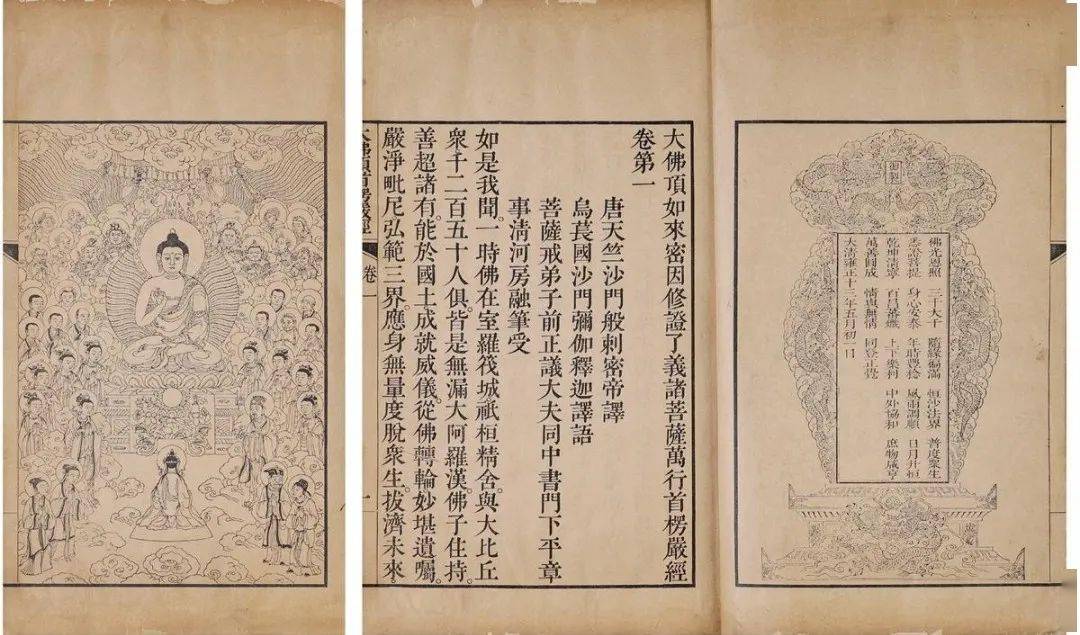 御製
佛光普照 三千大千 隨緣福滿 恒沙法界 普度眾生
悉證菩提 身心安泰 年時豐稔 風雨調順 日月升恒
乾坤清寧 百昌蕃熾 上下樂利 中外協和 庶物咸亨
萬善圓成 情與無情 同登正覺
大清雍正十三年五月初一日
大佛頂如來密因修證了義諸菩薩萬行首楞嚴經
卷第一
唐天竺沙門般剌密帝譯
烏萇國沙門彌伽釋迦譯語
菩薩戒弟子前正議大夫同中書門下平章
事清河房融筆受
如是我聞。一時佛在室羅筏城祇桓精舍。與大比丘
衆千二百五十人俱。皆是無漏大阿羅漢。佛子住持。
善超諸有。能於國土成就威儀。從佛轉輪妙堪遺囑。
嚴淨毗尼弘範三界。應身無量度脫衆生。拔濟未來。
大佛頂首楞嚴經
卷一
一